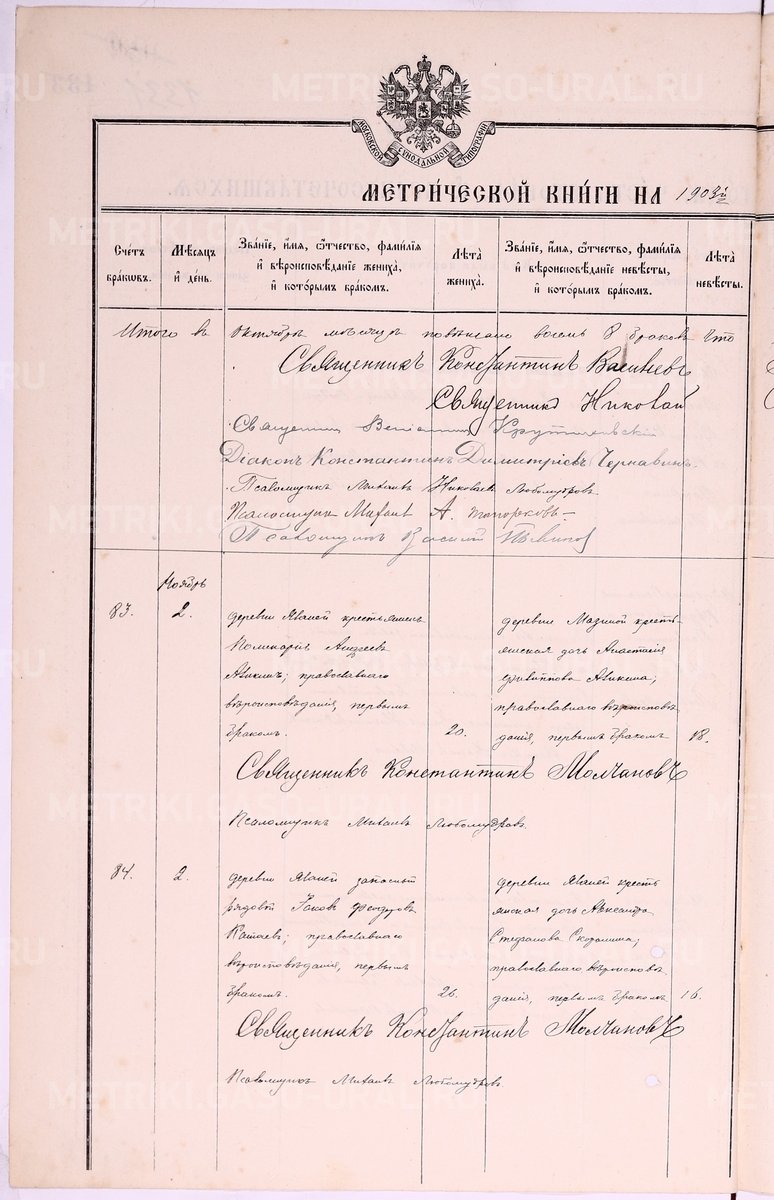 МОСКОВСКОЙ СѴНОДАЛЬНОЙ ТИПОГРАФІИ
МЕТРИ́ЧЕСКОЙ КНИ́ГИ НА 1903й
Сче́тъ бра́ковъ.
Мѣ́сяцъ и҆ де́нь.
Зва́нїе, и҆́мя, ѻ҆́тчество, фами́лїя и҆ вѣроисповѣ́данїе жениха̀, и҆ кото́рымъ бра́комъ.
Лѣ́та жениха̀.
Зва́нїе, и҆́мя, ѻ҆́тчество, фами́лїя и҆ вѣроисповѣ́данїе невѣ́сты, и҆ кото́рымъ бра́комъ.
Лѣ́та невѣ́сты.
Итого въ октябрѣ мѣсяцѣ повѣнчано восемь 8 браковъ Что
Священникъ Константинъ
Священникъ Николай
Священникъ Веніаминъ
Діаконъ Константинъ Димитріевъ Чернавинъ.
Псаломщикъ Михаилъ Николаевъ Любомудровъ.
Псаломщикъ Михаил А. Топорковъ
Псаломщикъ Василій
Ноябрь
83. 2.
деревни крестьянинъ
Андреевъ
Аликинъ; православнаго
вѣроисповѣданія, первымъ
бракомъ. 20.
деревни Мазиной кресть-
янская дочь Анастасія
Филиппова Аликина;
православнаго вѣроисповѣ
данія, первымъ бракомъ 18.
Священникъ Константинъ Молчановъ
Псаломщикъ Михаилъ Любомудровъ.
84. 2.
деревни запасный
рядовой Іаковъ Феодоровъ
Катаевъ; православнаго
вѣроисповѣданія, первымъ
бракомъ. 26.
деревни кресть
янская дочь Александра
Стефанова
православнаго вѣроисповѣ
данія, первымъ бракомъ 16.
Священникъ Константинъ Молчановъ
Псаломщикъ Михаилъ Любомудровъ.
METRIKI.GASO-URAL.RU